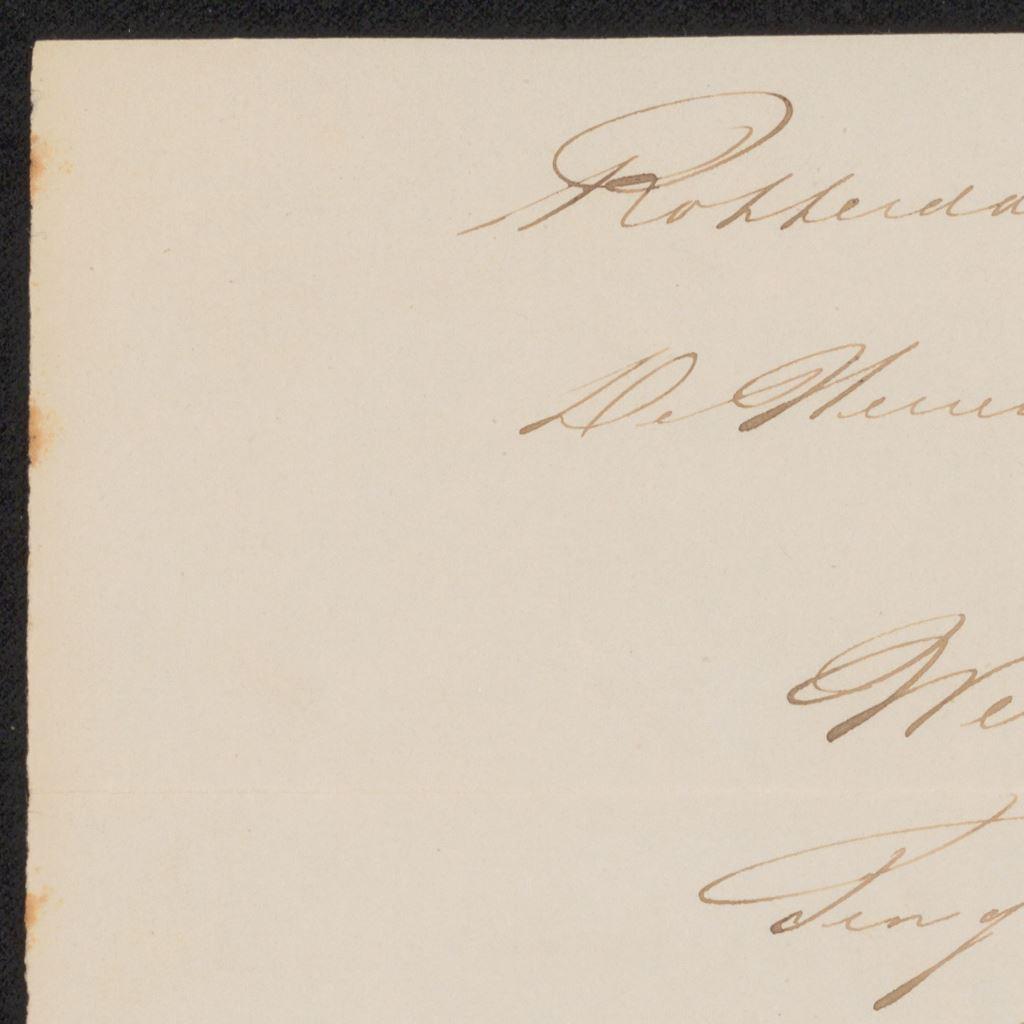 Rotterda
De Heere
We
Ten g